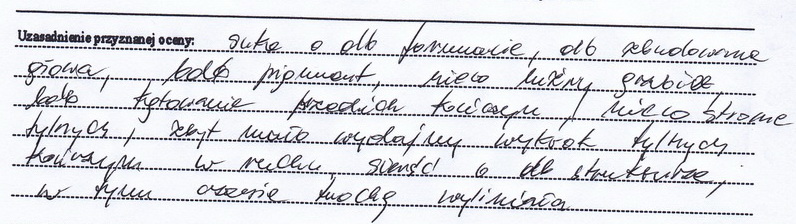 Uzasadnienie przyznanej oceny: suka o db formacie, db zbudowana
głowa, bdb pigment, nieco luźny grzbiet,
bdb kątowanie przednich kończyn, nieco strome
tylnych, zbyt mało wydajny wykrok tylnych
kończyn w ruchu, sierść o db strukturze,
w tym czasie trochę wyliniała